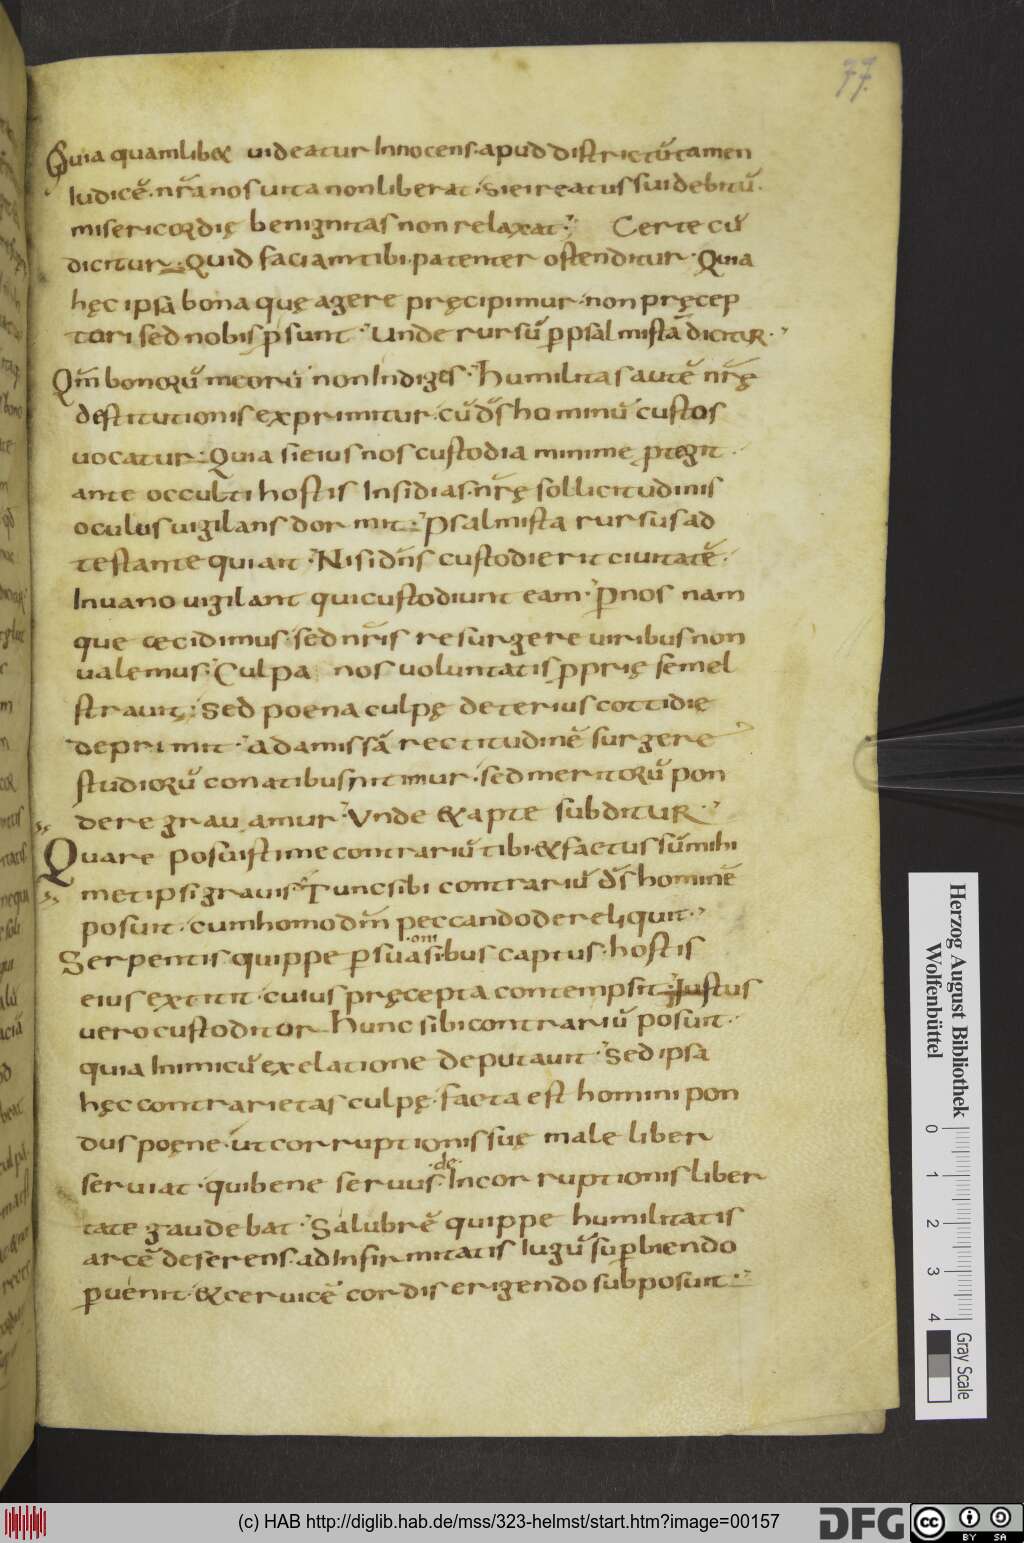 77
Quia quamlib& uideatur Innocens. apud districtū tamen
Iudicē. nr̄a nos uita non liberat. si ei reatus sui debitū.
misericordię benignitas non relaxat. Certe cū
dicitur. Quid faciam tibi. patenter ostenditur. Quia
hęc ipsa bona quę agere pręcipimur. non pręcep
tori sed nobis p̄sunt. Unde rursū p̱ psalmistā dicitur.
Qm̄ bonorū meorū non Indiges. humilitas autē nr̄ę
destitutionis exprimitur. cū d̄s hominū custos
uocatur. Quia si eius nos custodia minime ꝓtegit.
ante occulti hostis Insidias. nr̄ę sollicitudinis
oculus uigilans dormit. psalmista rursus ad
testante qui ait. Nisi dn̄s custodierit ciuitatē.
In uano uigilant qui custodiunt eam. p̱ nos nam
que cecidimus. sed nr̄is resurgere uiribus non
ualemus. Culpa nos uoluntatis ꝓprię semel
strauit. sed poena culpę deterius cottidię
deprimit. ad amissā rectitudinē surgere
studiorū conatibus nitimur. sed meritorū pon
dere grauamur. Vnde & apte subditur.
Quare posuisti me contrariū tibi. & factus sū mihi
met ipsi grauis. Tunc sibi contrariū d̄s hominē
posuit. cum homo dm̄ peccando dereliquit.
Serpentis quippe p̱suasi.oni.bus captus. hostis
eius extitit. cuius pręcepta contempsit. Iustus
uero custoditor hunc sibi contrariū posuit.
quia Inimicū ex elatione deputauit. Sed ipsa
hęc contrarietas culpę. facta est homini pon
dus poęne. ut corruptionis suę male liber
seruiat. qui bene seruus .de. Incorruptionis liber
tate gaudebat. Salubrē quippe humilitatis
arcē deserens. ad Infirmitatis Iugū sup̱biendo
p̱uenit. & ceruicē cordis erigendo subposuit.
Herzog August Bibliothek
Wolfenbüttel
0 1 2 3 4
Gray Scale
(c) HAB http://diglib.hab.de/mss/323-helmst/start.htm?image=00157
DFG
cc BY SA